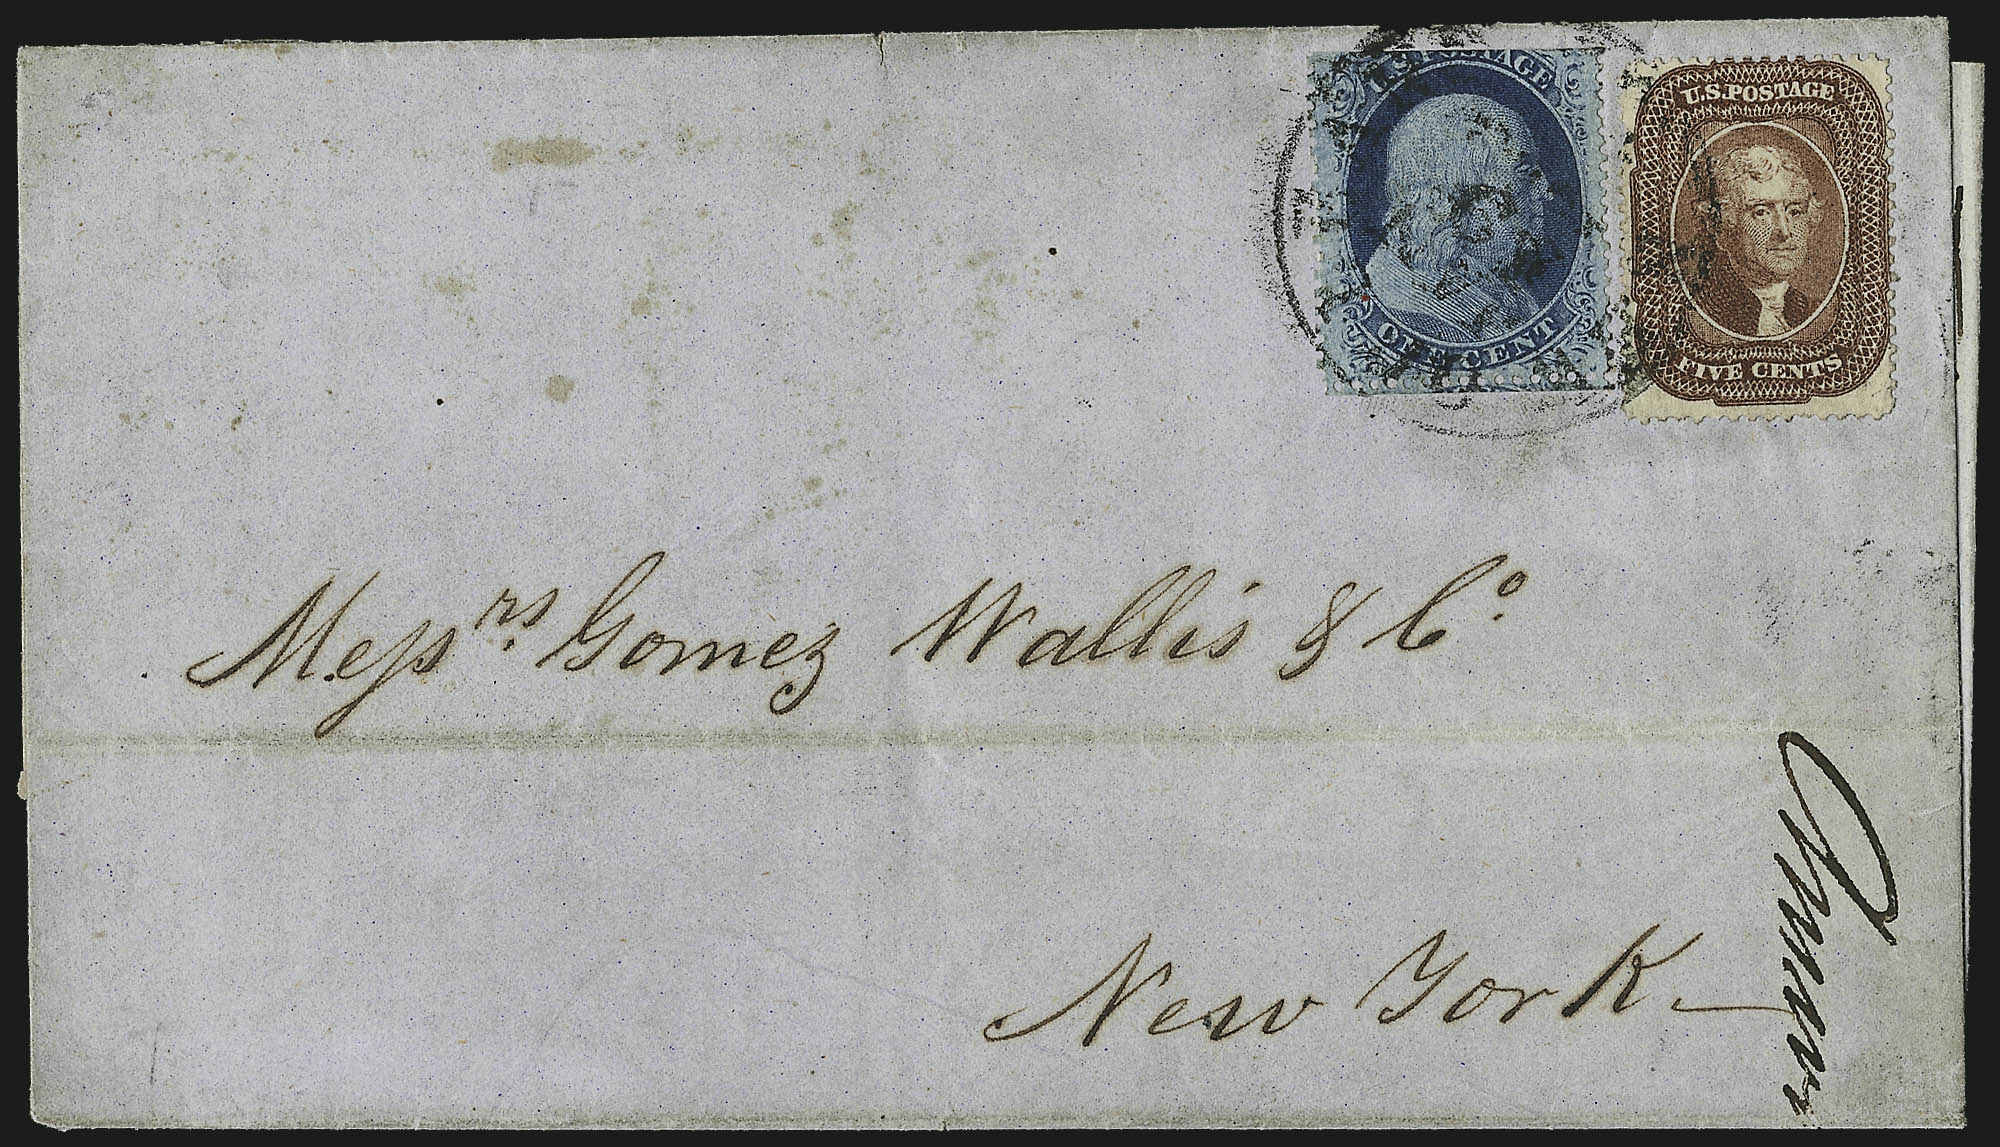 U.S. POSTAGE
ONE CENT
U.S. POSTAGE
FIVE CENTS
Messrs. Gomez Wallis & Co.
New York